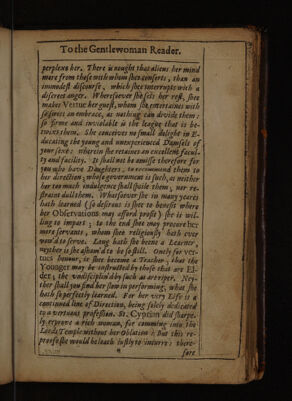 To the Gentlewoman Reader.
perplexe her. There is nought that aliens her mind
more from those with whom shee consorts, than an
immodest discourse, which shee interrupts with a
discreet anger. Wheresoever she sets her rest, shee
makes Vertue her guest, whom she entertaines with
so strict an embrace, as nothing can divide them;
so firme and inviolable is the league that is be-
twixt them. She conceives no small delight in E-
ducating the young and unexperienced Damsels of
your sexe: wherein she retaines an excellent facul-
ty and facility. It shall not be amisse therefore for
you who have Daughters, to recommend them to
her direction; whose government is such, as neither
her too much indulgence shall spoile them, nor re-
straint dull them. Whatsoever she in many yeares
hath learned (so desirous is shee to benefit where
her Observations may afford profit) she is wil-
ling to impart; to the end shee may procure her
more servants, whom shee religiously hath ever
vow'd to serve. Long hath she beene a Learner,
neither is she asham'd to be so still. Onely for ver-
tues honour, is shee become a Teacher, that the
Younger may be instructed by those that are El-
der; the undisciplin'd by such as are riper. Nei-
ther shall you find her slow in performing, what she
hath so perfectly learned. For her very Life is a
continued line of Direction, being solely dedicated
to a vertuous profession. St. Cyprian did sharpe-
ly reprove a rich woman, for comming into the
Lords Temple without her Oblation: But this re-
proofe she would be loath justly to incurre; there-
fore